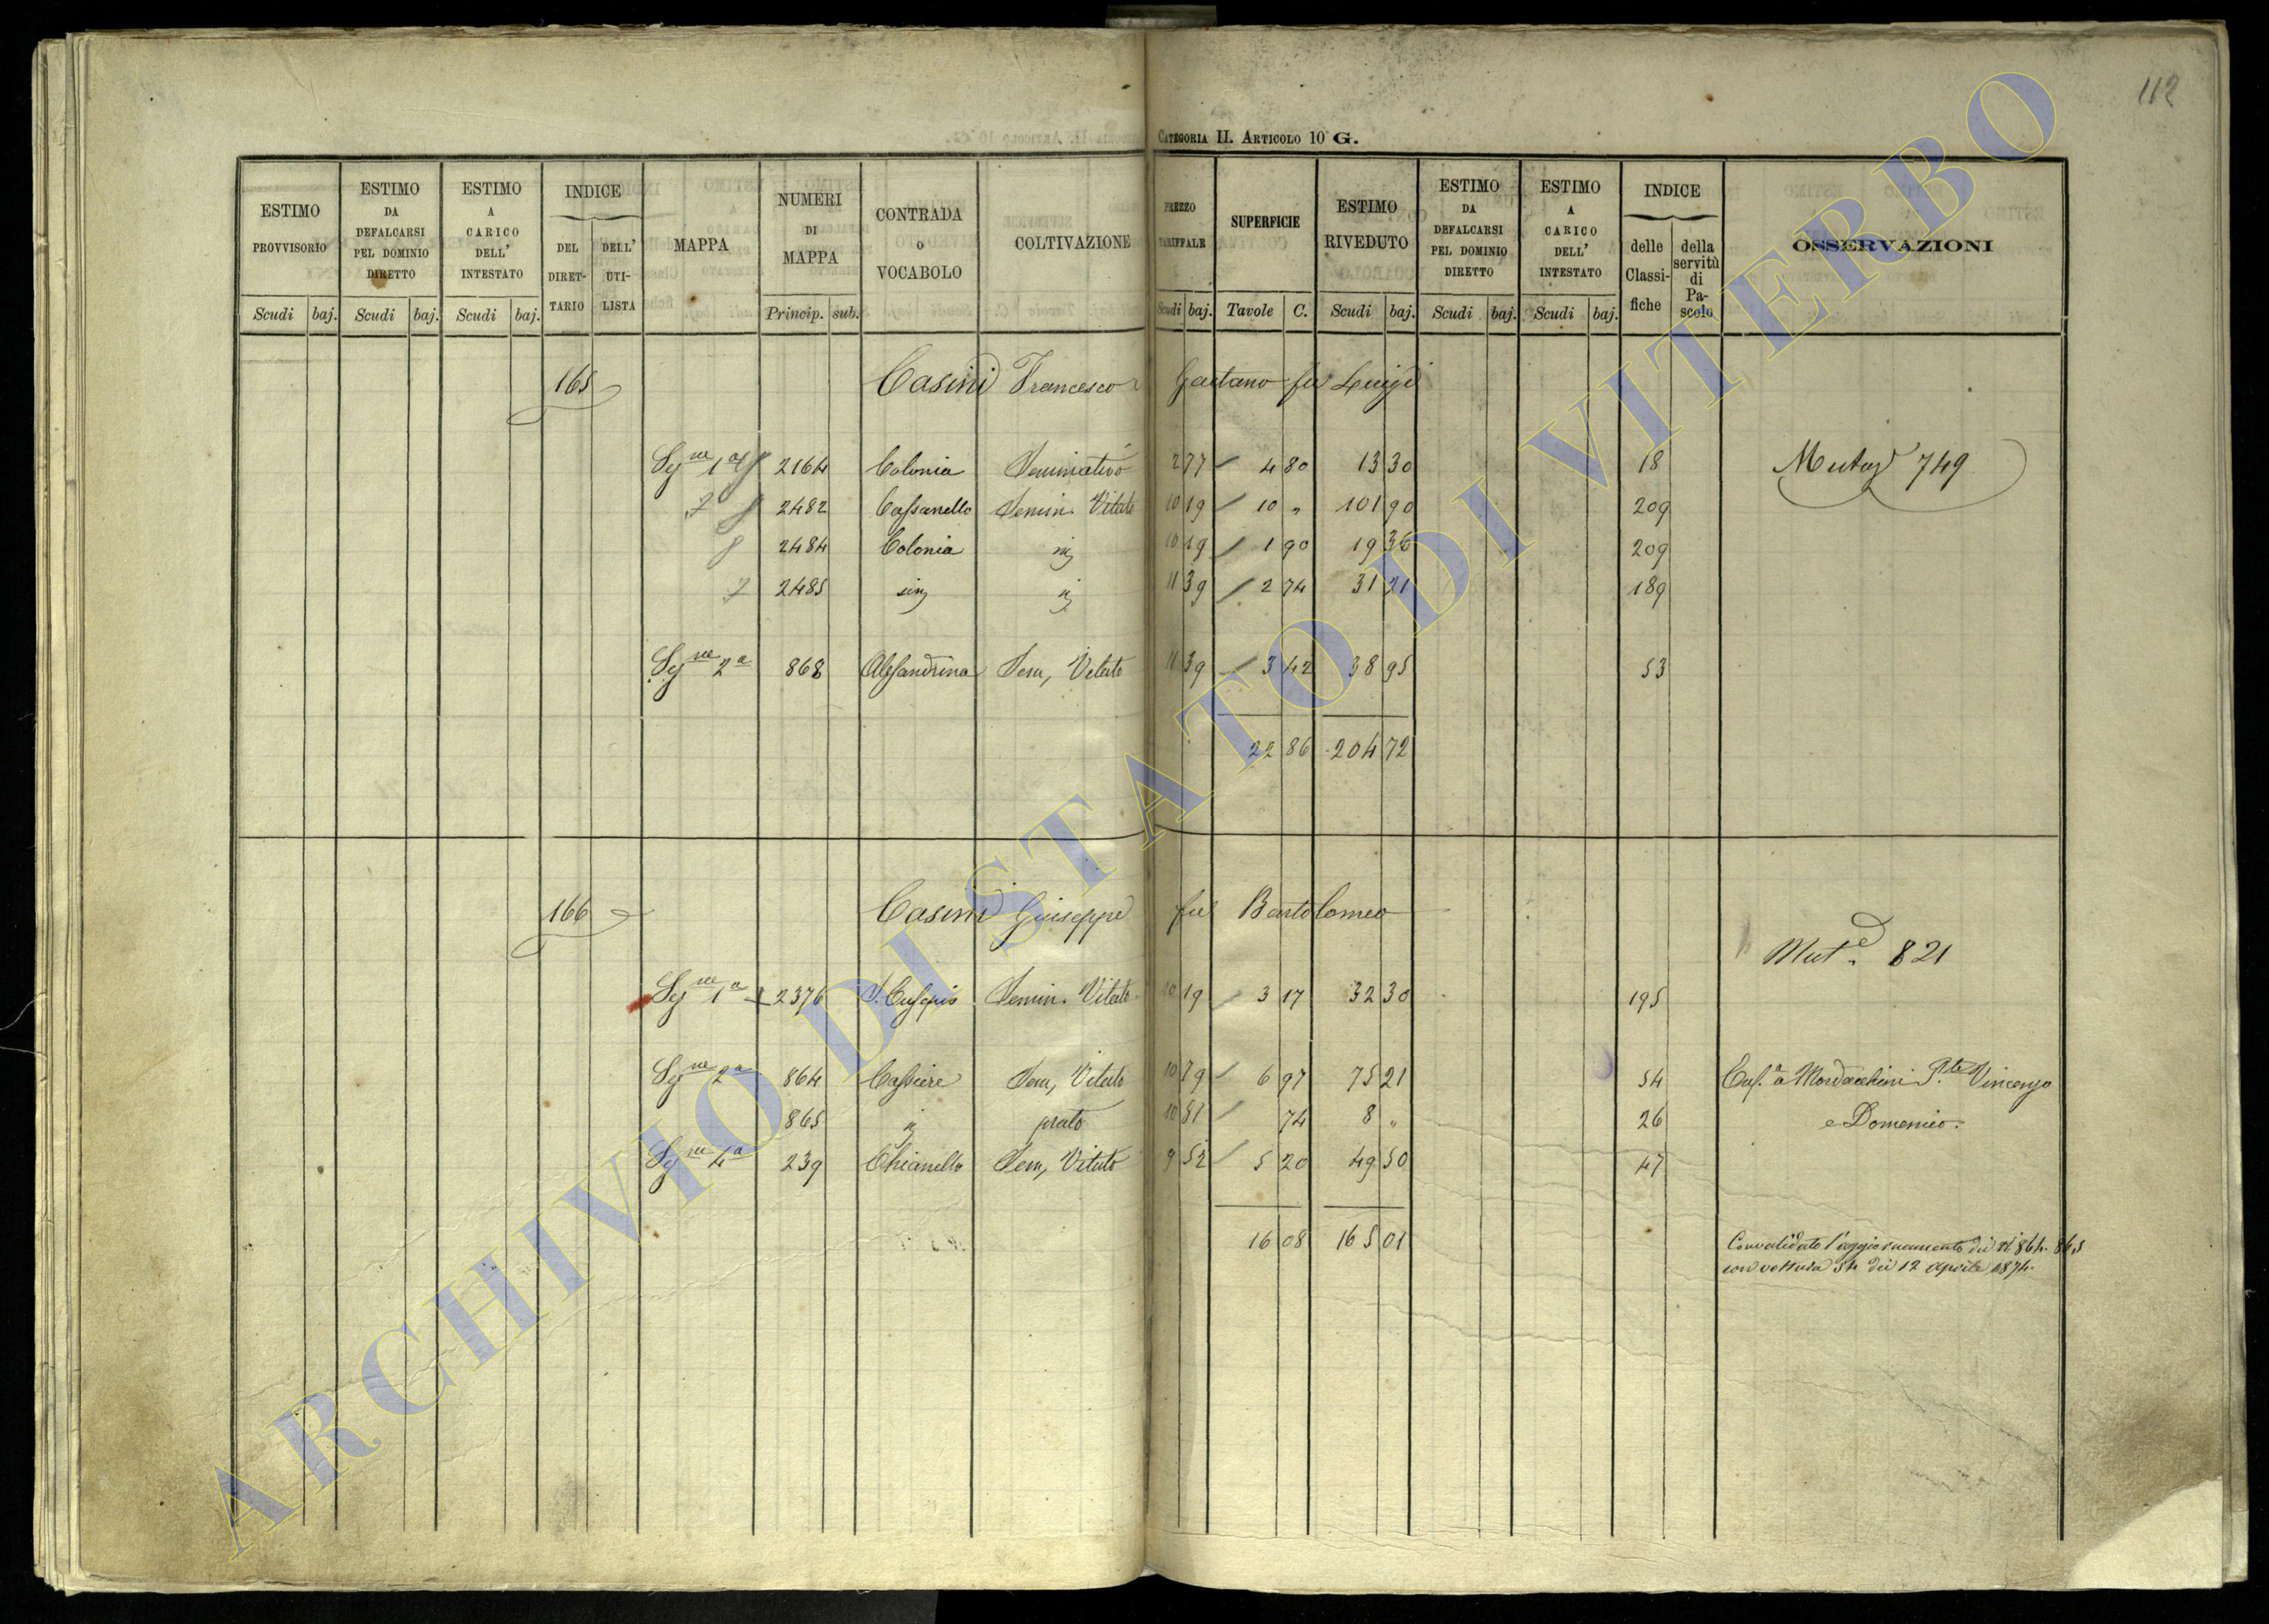 112
CATEGORIA II. ARTICOLO 10 G.
ESTIMO PROVVISORIO
ESTIMO DA DEFALCARSI PEL DOMINIO DIRETTO
ESTIMO A CARICO DELL' INTESTATO
INDICE
DEL DIRETTARIO
DELL' UTILISTA
MAPPA
NUMERI DI MAPPA
CONTRADA O VOCABOLO
COLTIVAZIONE
PREZZO TARIFFALE
SUPERFICIE
ESTIMO RIVEDUTO
ESTIMO DA DEFALCARSI PEL DOMINIO DIRETTO
ESTIMO A CARICO DELL' INTESTATO
INDICE
delle Classifiche
della servitù di Pascolo
OSSERVAZIONI
Scudi baj. Scudi baj. Scudi baj. Princip. sub. Scudi baj. Tavole C. Scudi baj. Scudi baj. Scudi baj.
165 Casini Francesco Gaetano fu Luigi
Sez.ne 1a 2164 Colonia Seminativo 2 77 4 80 13 30 18
749
2482 Cassanello Semin. Vitato 10 19 10 " 101 90 209
2484 Colonia 10 19 1 90 19 36 209
2485 11 39 2 74 31 21 189
Sez.ne 2a 868 Alessandrina Sem, Vitato 11 39 3 42 38 95 53
22 86 204 72
166 Casini Giuseppe fu Bartolomeo
Mut.e 821
Sez.ne 1a 2376 Semin. Vitato 10 19 3 17 32 30 195
Sez.ne 2a 864 Cassiere Sem, Vitato 10 79 6 97 75 21 54
Vincenzo
865 prato 10 81 74 8 " 26
e Domenico.
Sez.ne 4a 239 Chianello Sem, Vitato 9 52 5 20 49 50 47
16 08 165 01
Convalidato l'aggiornamento dei N.i 864. 865
con voltura 54 dei 12 Aprile 1874.
ARCHIVIO DI STATO DI VITERBO